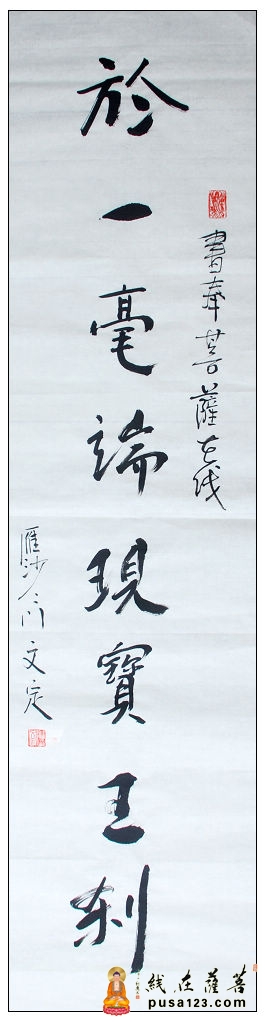 書奉菩薩在线
於一毫端現寶王刹
雁沙门文定
菩薩在线
pusa123.com